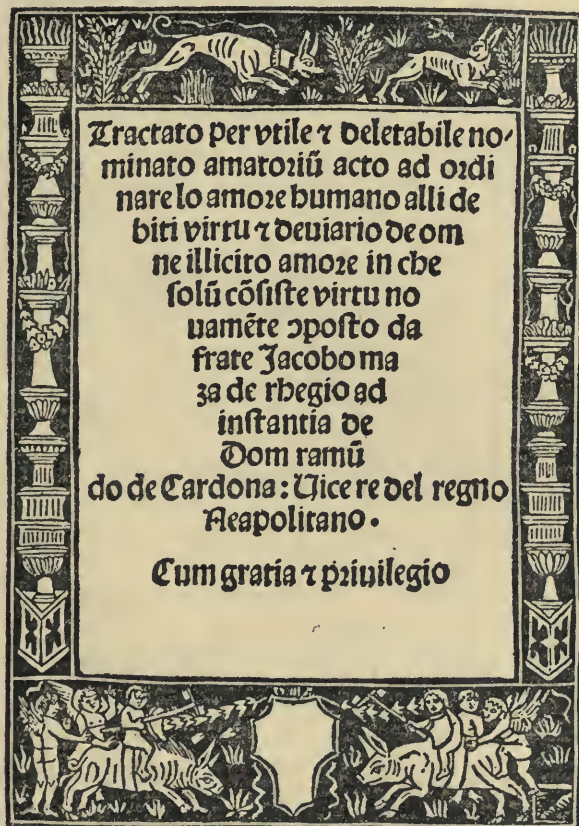 Tractato per vtile ⁊ deletabile no-
minato amatoriū acto ad ordi
nare lo amore humano alli de
biti virtu ⁊ deuiario de om
ne illicito amore in che
solū cōsiste virtu no
uamēte ↄposto da
frate Jacobo ma
za de rhegio ad
instantia de
Dom ramū
do de Cardona: Vice re del regno
Neapolitano.
Cum gratia ⁊ priuilegio